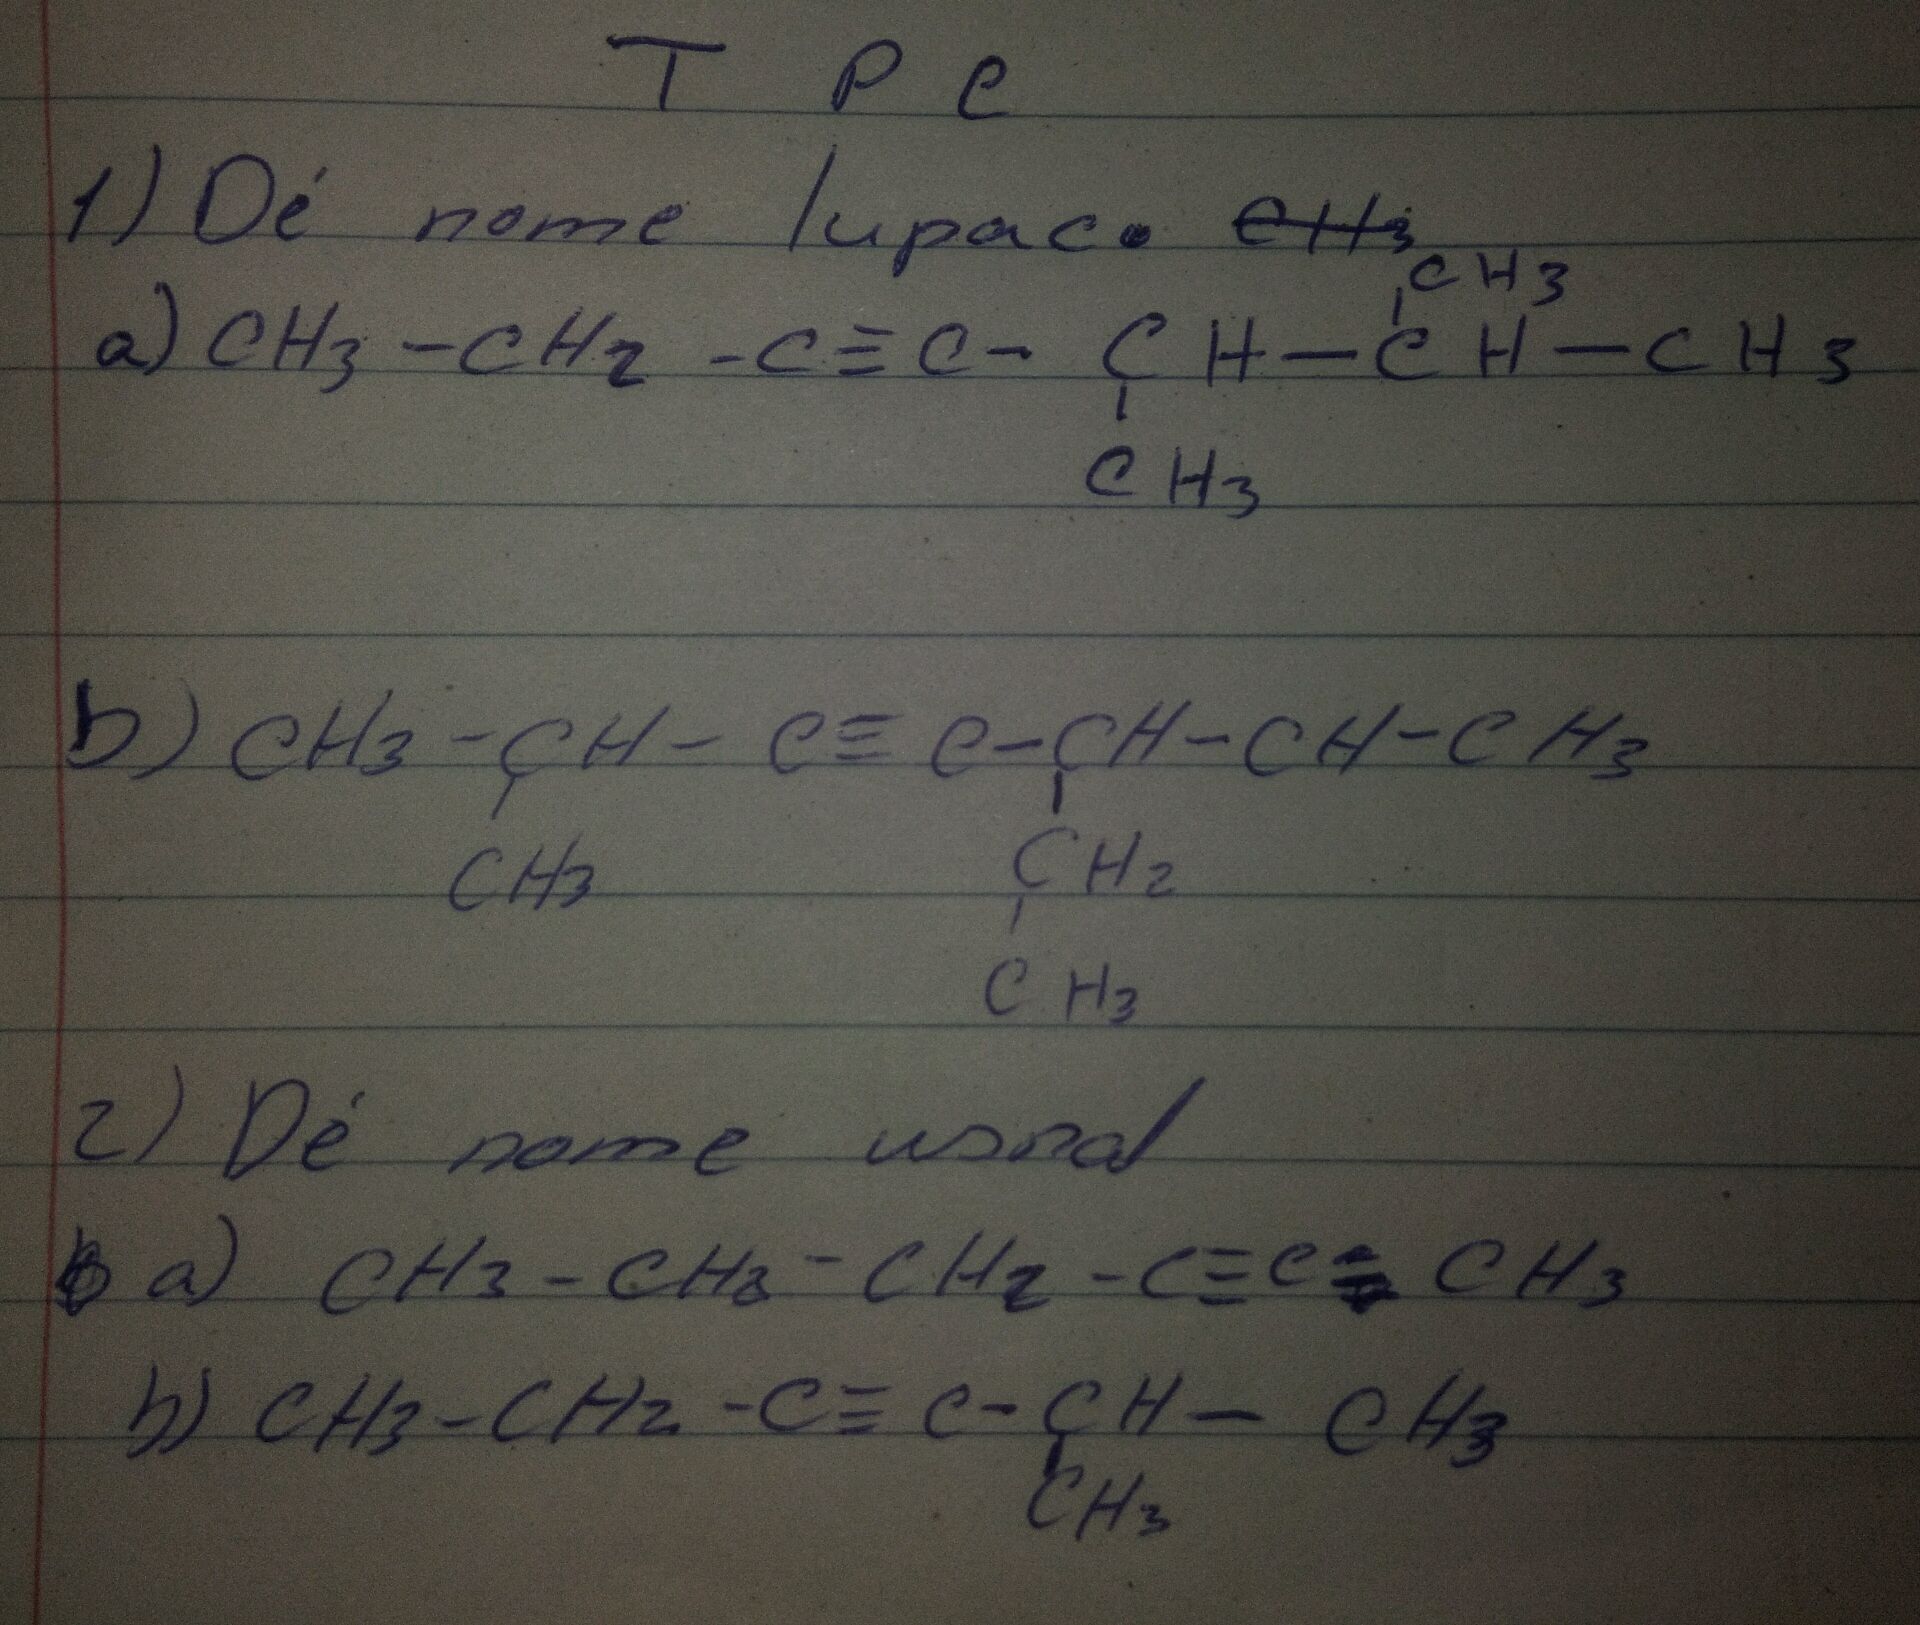 T P C
1) Dê nome Iupaco CH3
CH3
a) CH3 - CH2 - C≡C - CH - CH - CH3
CH3
b) CH3 - CH - C≡C - CH - CH - CH3
CH3 CH2
CH3
2) Dê nome usual
a) CH3 - CH2 - CH2 - C≡C - CH3
b) CH3 - CH2 - C≡C - CH - CH3
CH3